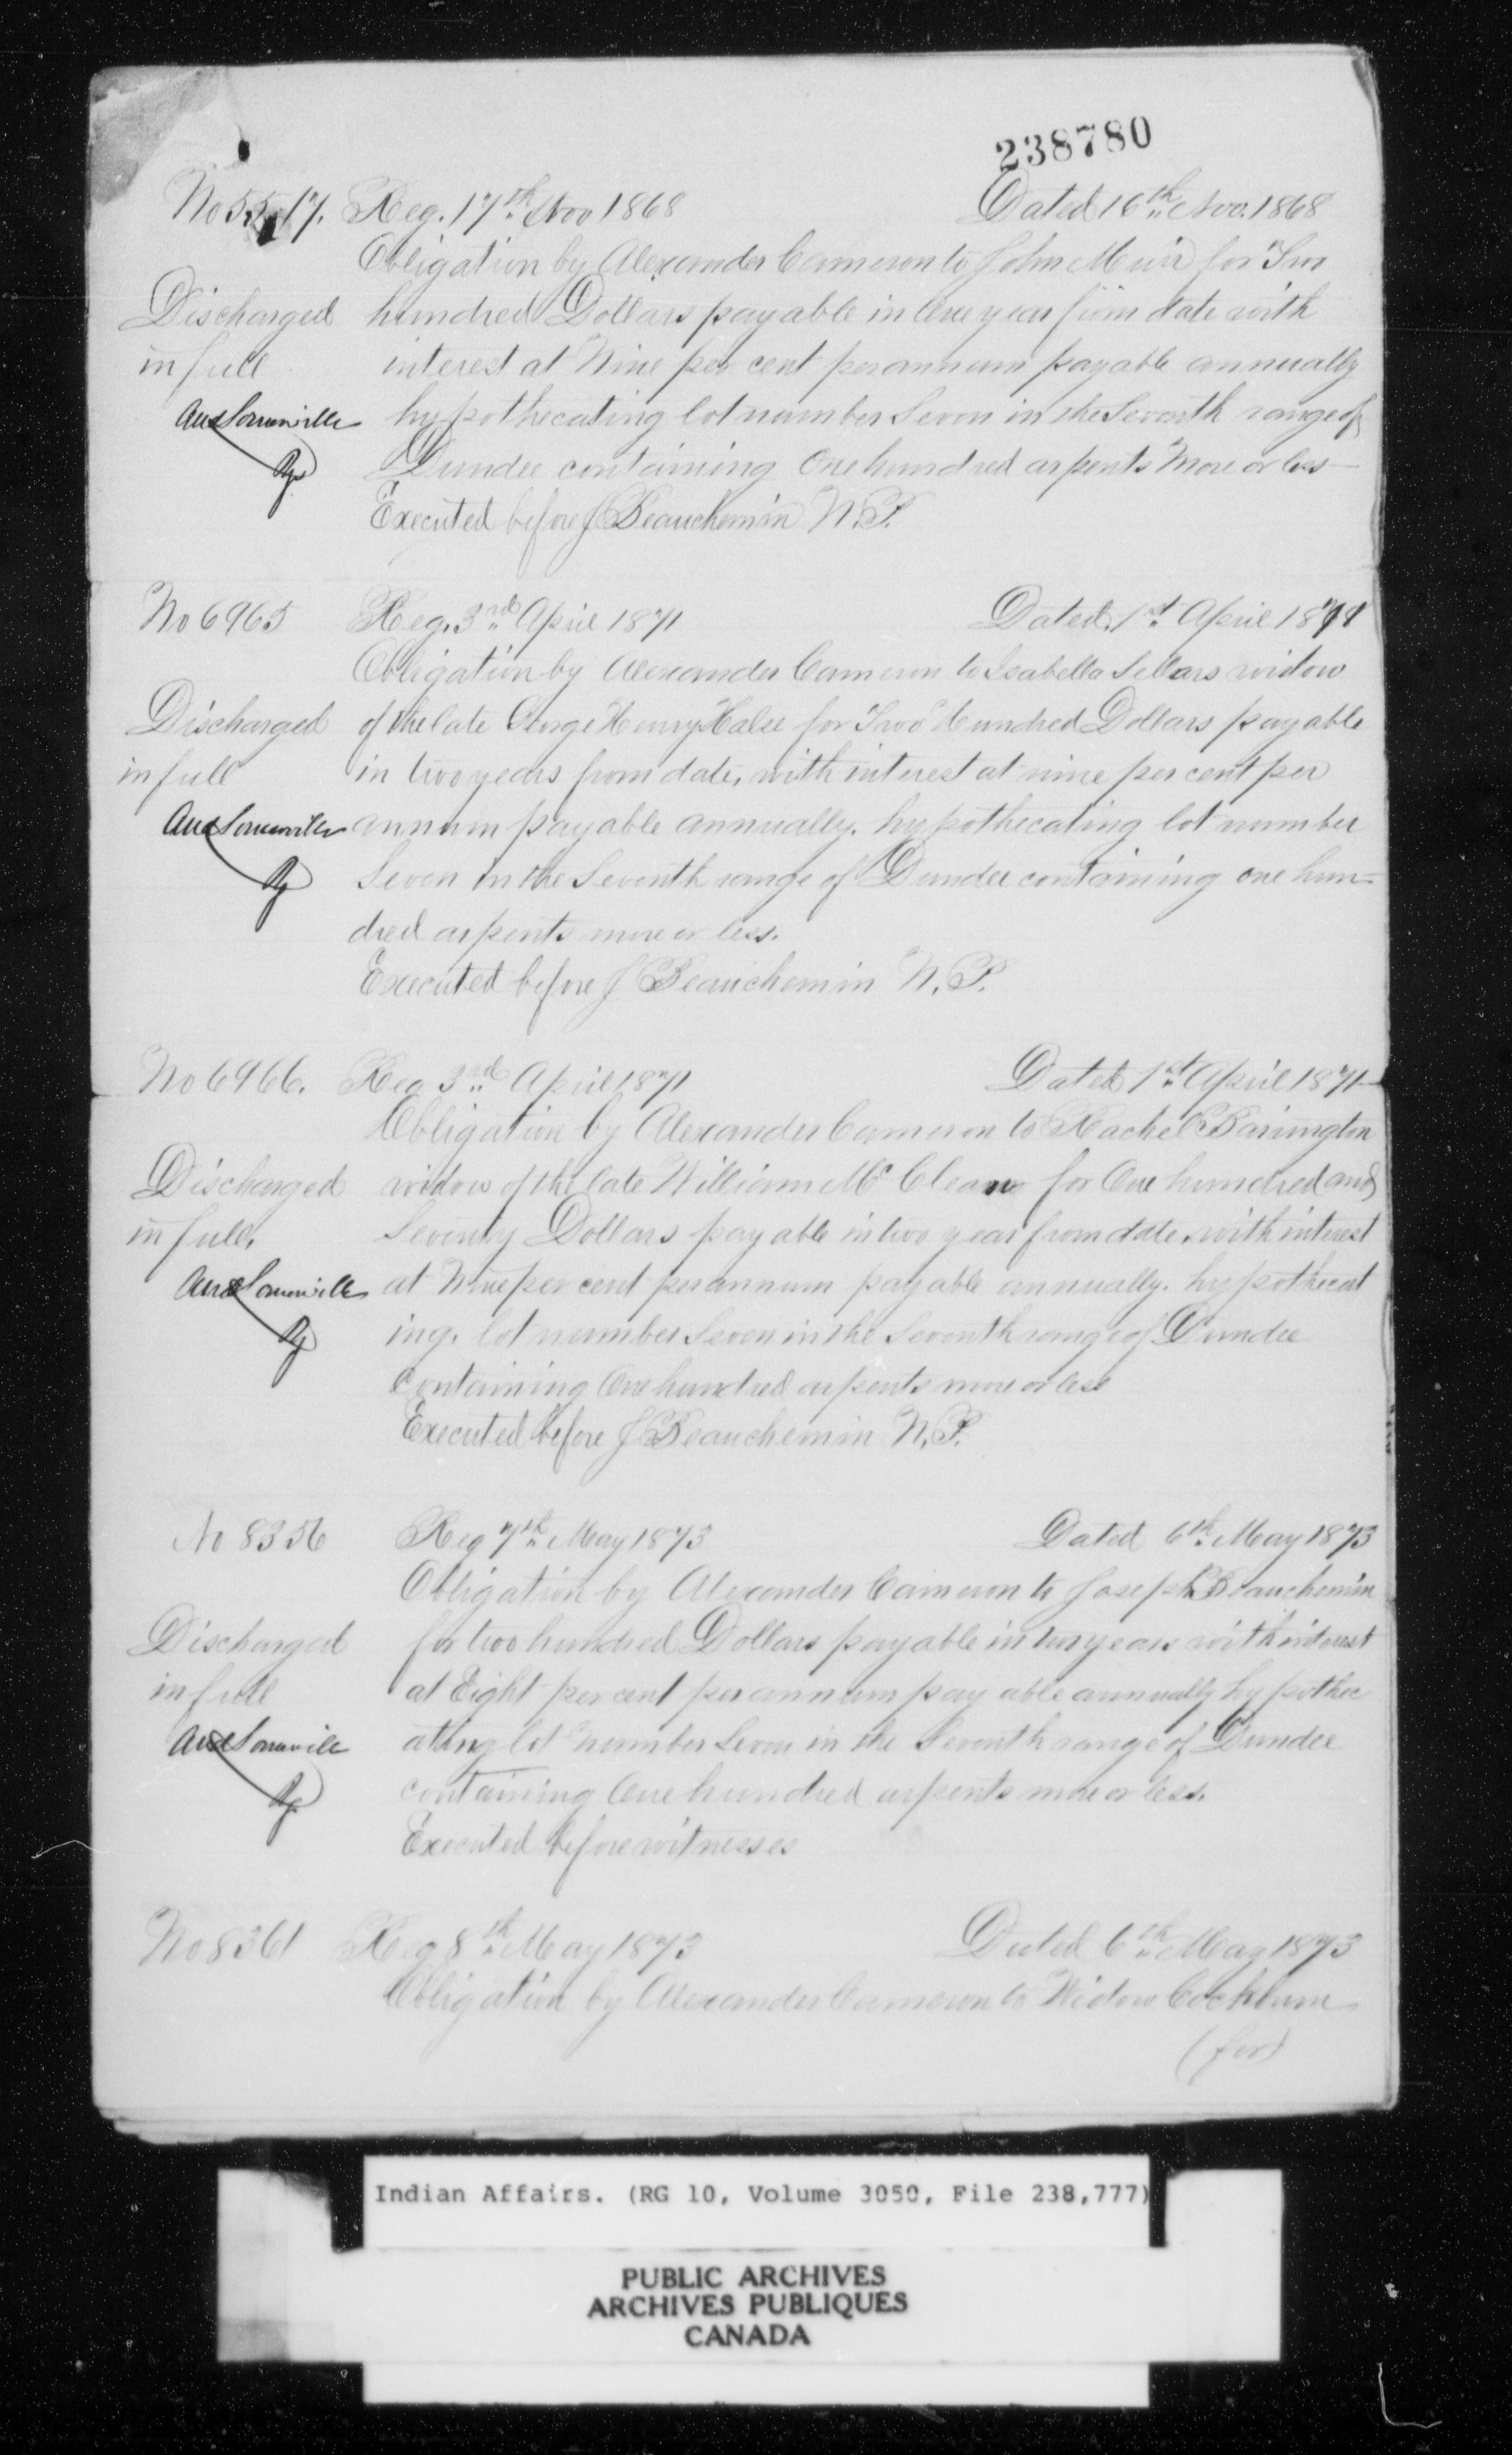 238780
No 5517. Reg. 17th Nov 1868 Dated 16th Nov. 1868
Obligation by Alexander Cameron to John Muir for Two
Discharged hundred Dollars payable in One year from date with
in full interest at Nine per cent per annum payable annually
And Somerville hypothecating lot number Seven in the Seventh range of
Rgr Dundee containing One hundred arpents More or less—
Executed before J Beauchemin N.P.
No 6965 Reg. 3rd April 1871 Dated, 1st April 1871
Obligation by Alexander Cameron to Isabella Sellars widow
Discharged of the late George Henry Halse for Two Hundred Dollars payable
in full in two years from date, with interest at nine per cent per
And Somerville annum payable annually. hypothecating lot number
Rgr Seven in the Seventh range of Dundee containing one hun=
dred arpents more or less.
Executed before J Beauchemin N.P.
No 6966. Reg 3rd April 1871 Dated 1st April 1871
Obligation by Alexander Cameron to Rachel Barrington
Discharged widow of the late William McClean for One hundred and
in full, Seventy Dollars payable in two year from date, with interest
And Somerville at Nine per cent per annum payable annually. hypothecat
Rgr ing. lot number Seven in the Seventh range of Dundee
Containing One hundred arpents more or less
Executed before J Beauchemin N.P.
No 8356 Reg 7th May 1873 Dated 6th May 1873
Obligation by Alexander Cameron to Joseph Beauchemin
Discharged for two hundred Dollars payable in two years with interest
in full at Eight per cent per annum payable annually hypothec
And Somerville ating lot number Seven in the Seventh range of Dundee
Rgr containing One hundred arpents more or less.
Executed before witnesses
No 8361 Reg 8th May 1873 Dated 6th May 1873
Obligation by Alexander Cameron to Widow Cockburn
(for)
Indian Affairs. (RG 10, Volume 3050, File 238,777)
PUBLIC ARCHIVES
ARCHIVES PUBLIQUES
CANADA